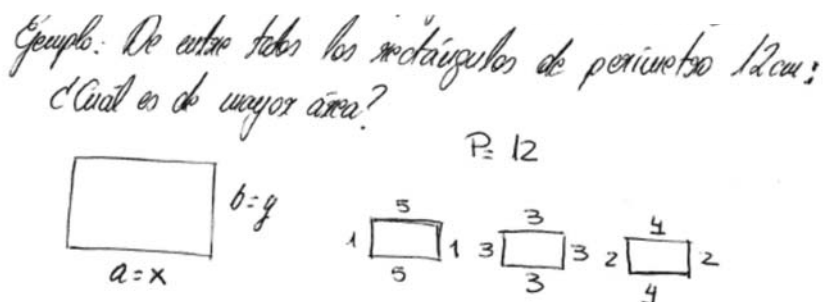 Ejemplo: De entre todos los rectángulos de perimetro 12cm:
¿Cuál es de mayor área?
P= 12
b=y
a=x
5
1 1
5
3
3 3
3
4
2 2
4